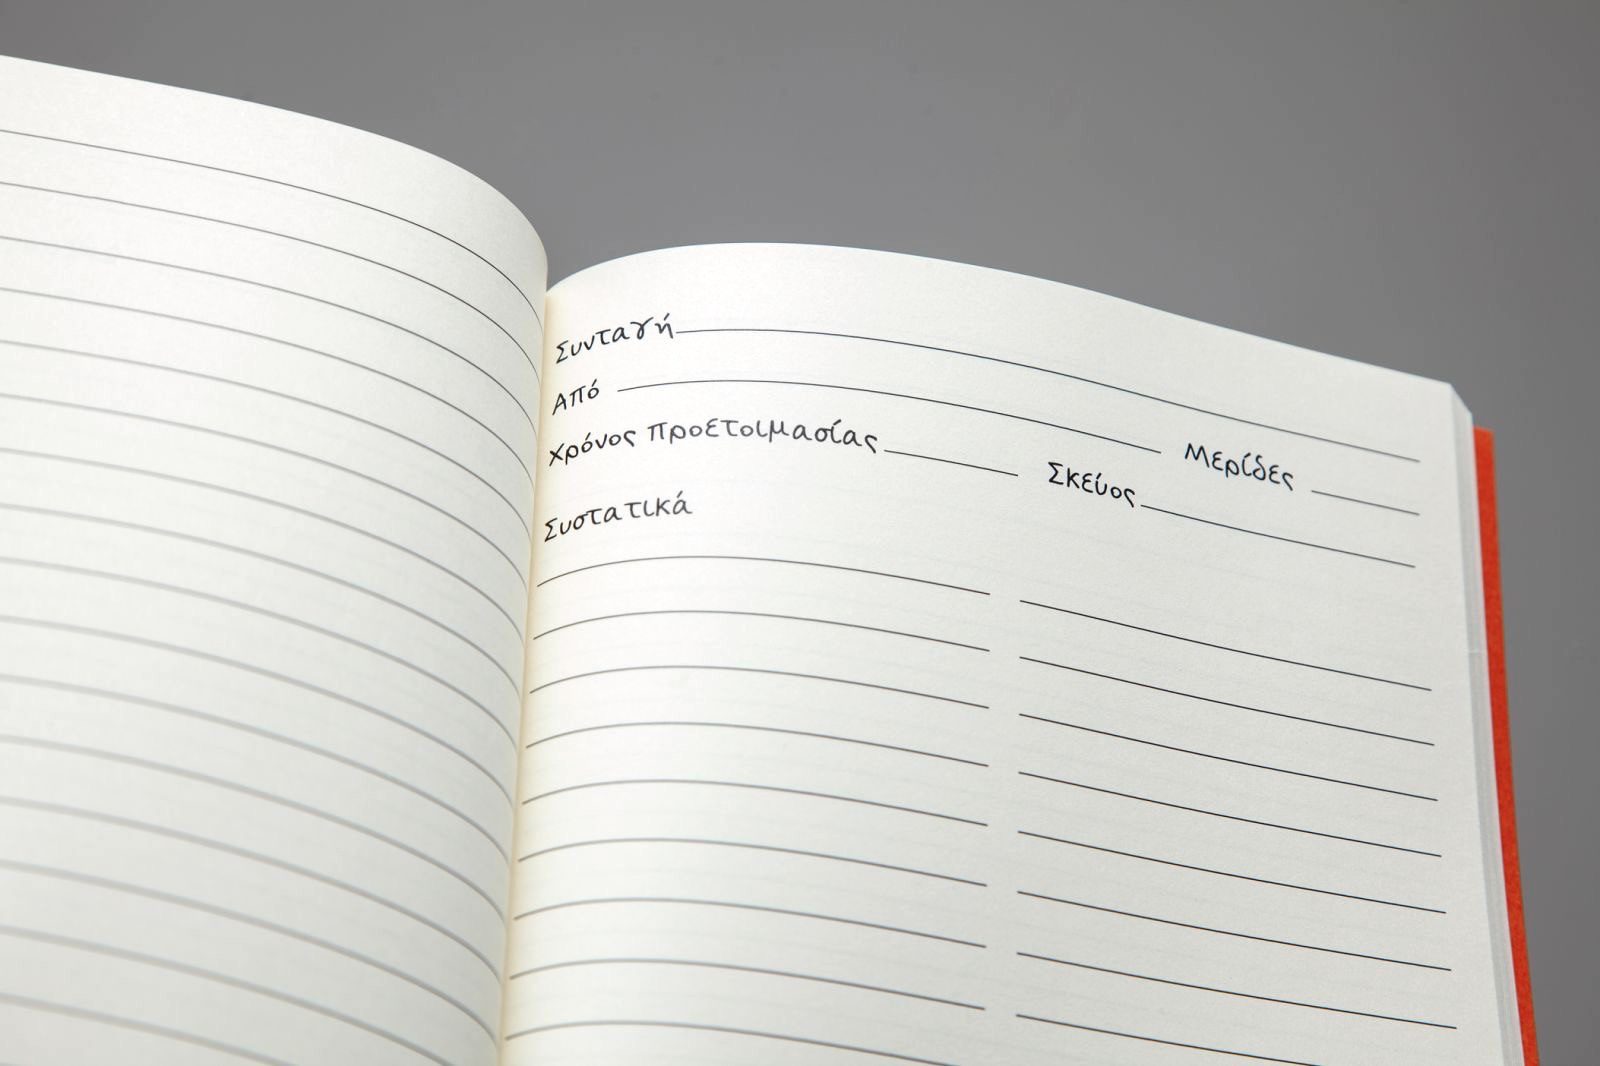 Συνταγή
Από Μερίδες
Χρόνος προετοιμασίας Σκεύος
Συστατικά